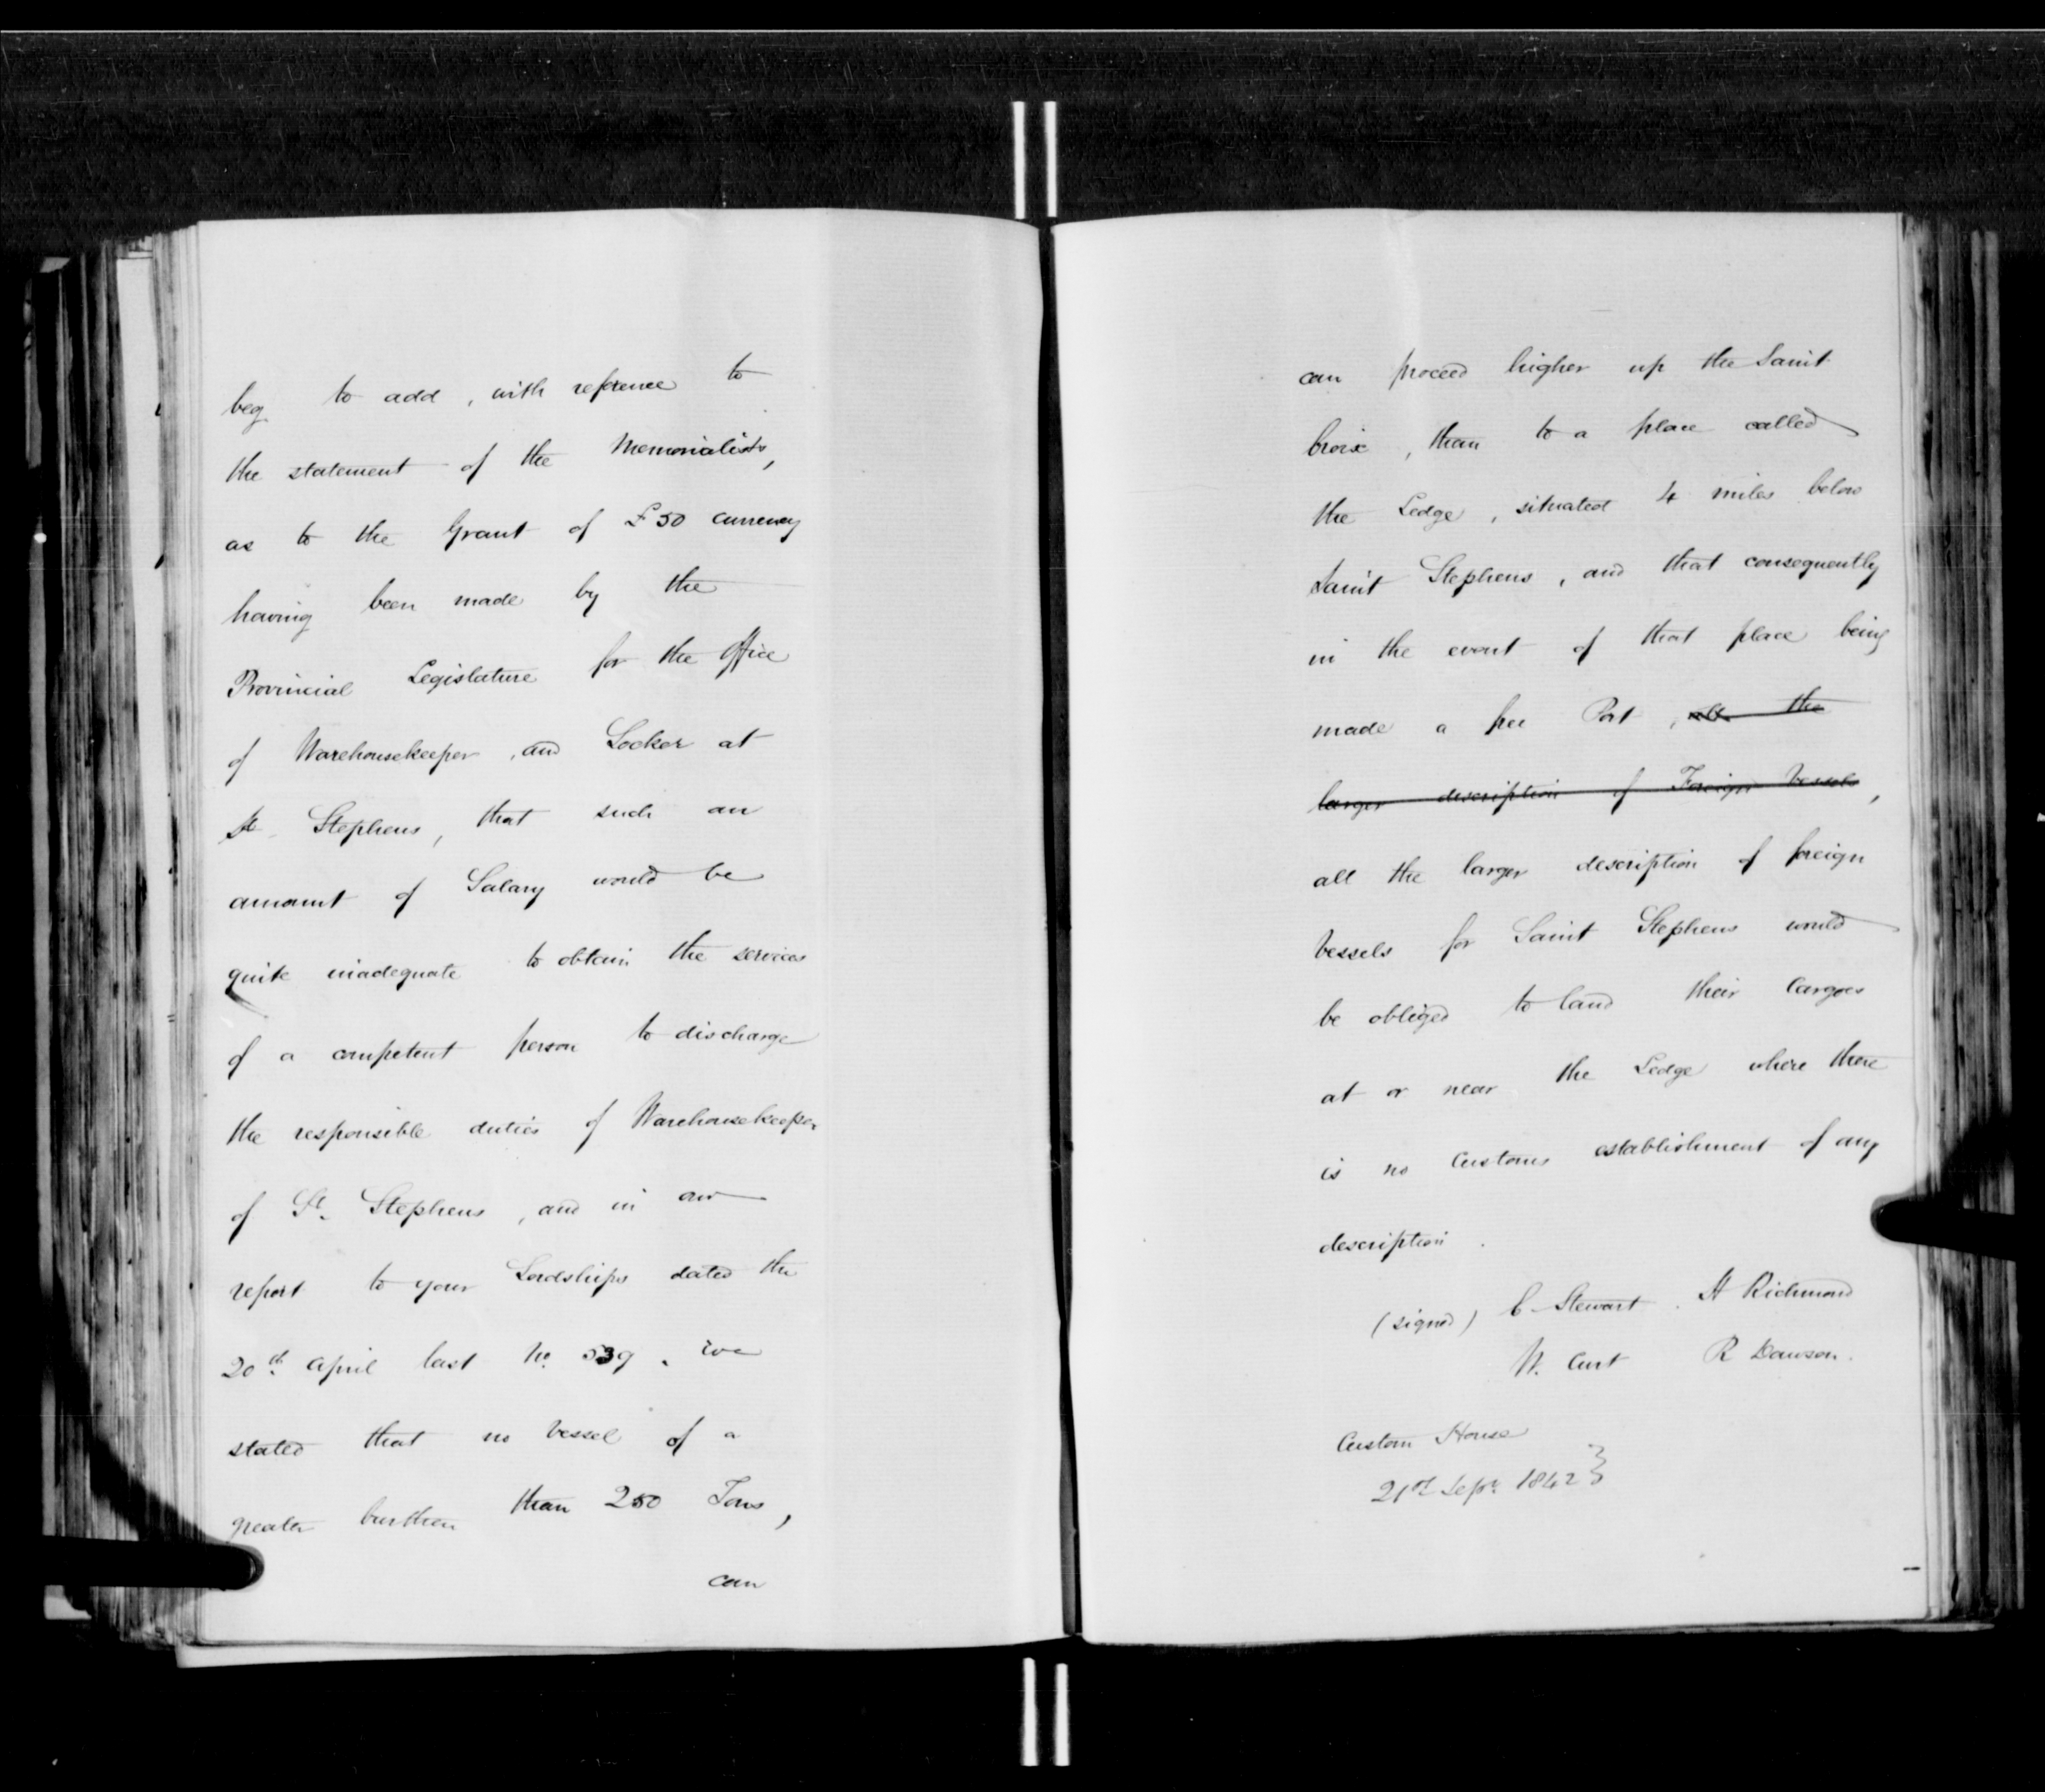 beg to add, with reference to
the statement of the Memorialists,
as to the Grant of £50 currency
having been made by the
Provincial Legislature for the Office
of Warehousekeeper, and Locker at
St Stephens, that such an
amount of Salary would be
quite inadequate to obtain the services
of a competent person to discharge
the responsible duties of Warehousekeeper
of St. Stephens, and in our
report to your Lordships dated the
20th April last No. 539, we
stated that no vessel of a
greater burthen than 250 Tons,
can
can proceed higher up the Saint
Croix, than to a place called
the Ledge, situated 4 miles below
Saint Stephens, and that consequently
in the event of that place being
made a free Port, all the
larger description of Foreign Vessels,
all the larger description of foreign
Vessels for Saint Stephens would
be obliged to land their Cargoes
at or near the Ledge where there
is no Customs establishment of any
description.
(signed) C Stewart. H Richmond
W. Cust R Dawson.
Custom House
21st Sepr. 1842 }